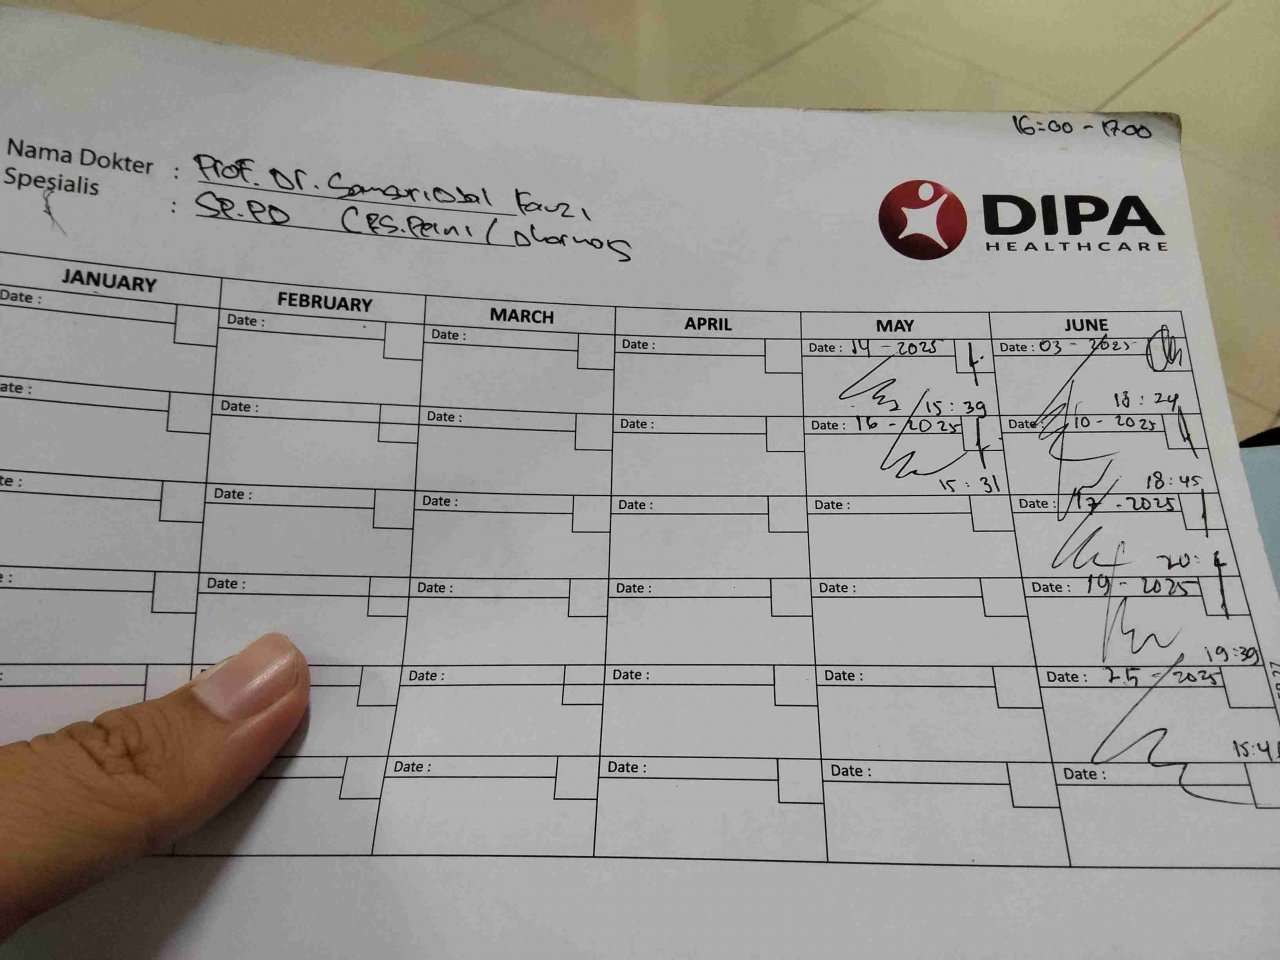 16:00 - 17.00
Nama Dokter : Prof. Dr. Samsuridjal Fauzi
Spesialis : SP.PD (RS.Pelni / Dharmais
DIPA
HEALTHCARE
JANUARY FEBRUARY MARCH APRIL MAY JUNE
Date : Date : Date : Date : Date : 14 - 2025 Date : 03 - 2025
15 : 39 18 : 24
ate : Date : Date : Date : Date : 16 - 2025 Date : 10 - 2025
15 : 31 18 : 45
te : Date : Date : Date : Date : Date : 17 - 2025
20 :
: Date : Date : Date : Date : Date : 19 - 2025
19 : 39
: Date : Date : Date : Date : 25 - 2025
15:41
Date : Date : Date : Date :